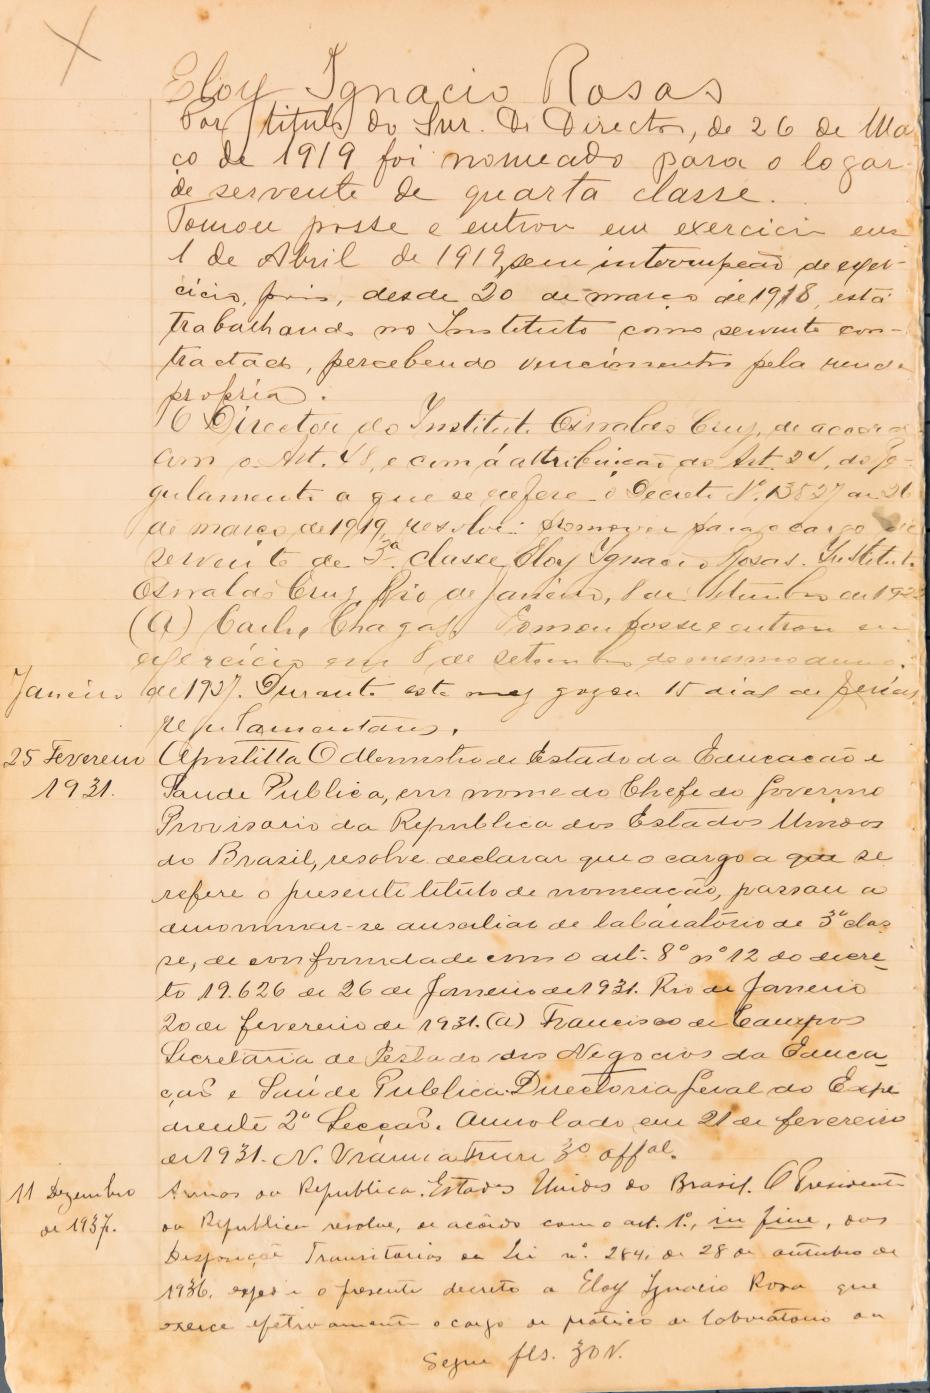 Eloy Ignacio Rosas
Por titulo do Snr. Dr Director, de 26 de Ma
ço de 1919 foi nomeado para o logar
de servente de quarta classe.
Tomou posse e entrou em exercicio em
1 de Abril de 1919, sem interrupção de exer-
cicio, pois, desde 20 de março de 1918, está
trabalhando no Instituto como servente con-
tractado, percebendo vencimentos pela renda
propria.
O Director do Instituto Oswaldo Cruz, de acordo
com o Art. 48, e com á attribuição do Art. 24, do Re-
gulamento a que se refere o Decreto Nº. 13527 de 26
de março de 1919, resolve: promover para o cargo de
servente de 3ª classe, Eloy Ignacio Rosas. Instituto
Oswaldo Cruz, Rio de Janeiro, 8 de Setembro de 192
(A) Carlos Chagas. Tomou posse e entrou em
exercício em 8 de setembro do mesmo anno.
Janeiro de 1927. Durante este mez gozou 15 dias de ferias
regulamentares.
25 Fevereiro Apostilla O Ministro de Estado da Educação e
1931. Saude Publica, em nome do Chefe do Governo
Provisorio da Republica dos Estados Unidos
do Brasil, resolve declarar que o cargo a que se
refere o presente titulo de nomeação, passou a
denominar-se auxiliar de laboratório de 3ª clas
se, de conformidade com o art. 8º nº 12 do decre-
to 19.626 de 26 de Janeiro de 1931. Rio de Janeiro
20 de fevereiro de 1931. (a) Francisco de Campos
Secretaria de Estado dos Negocios da Educa-
ção e Saúde Publica. Directoria Geral do Expe
diente 2ª Secção. Annotado em 21 de fevereiro
de 1931. N. 3º offal.
11 Dezembro Armas da Republica. Estados Unidos do Brasil. O Presidente
de 1937. da Republica resolve, de acôrdo com o art. 1º, in fine, das
Disposiçõs Transitorias da Lei nº. 284, de 28 de outubro de
1936, expedir o presente decreto a Eloy Ignacio Rosa que
exerce efetivamente o cargo de prático de laboratorio da
Segue fls. 30 V.